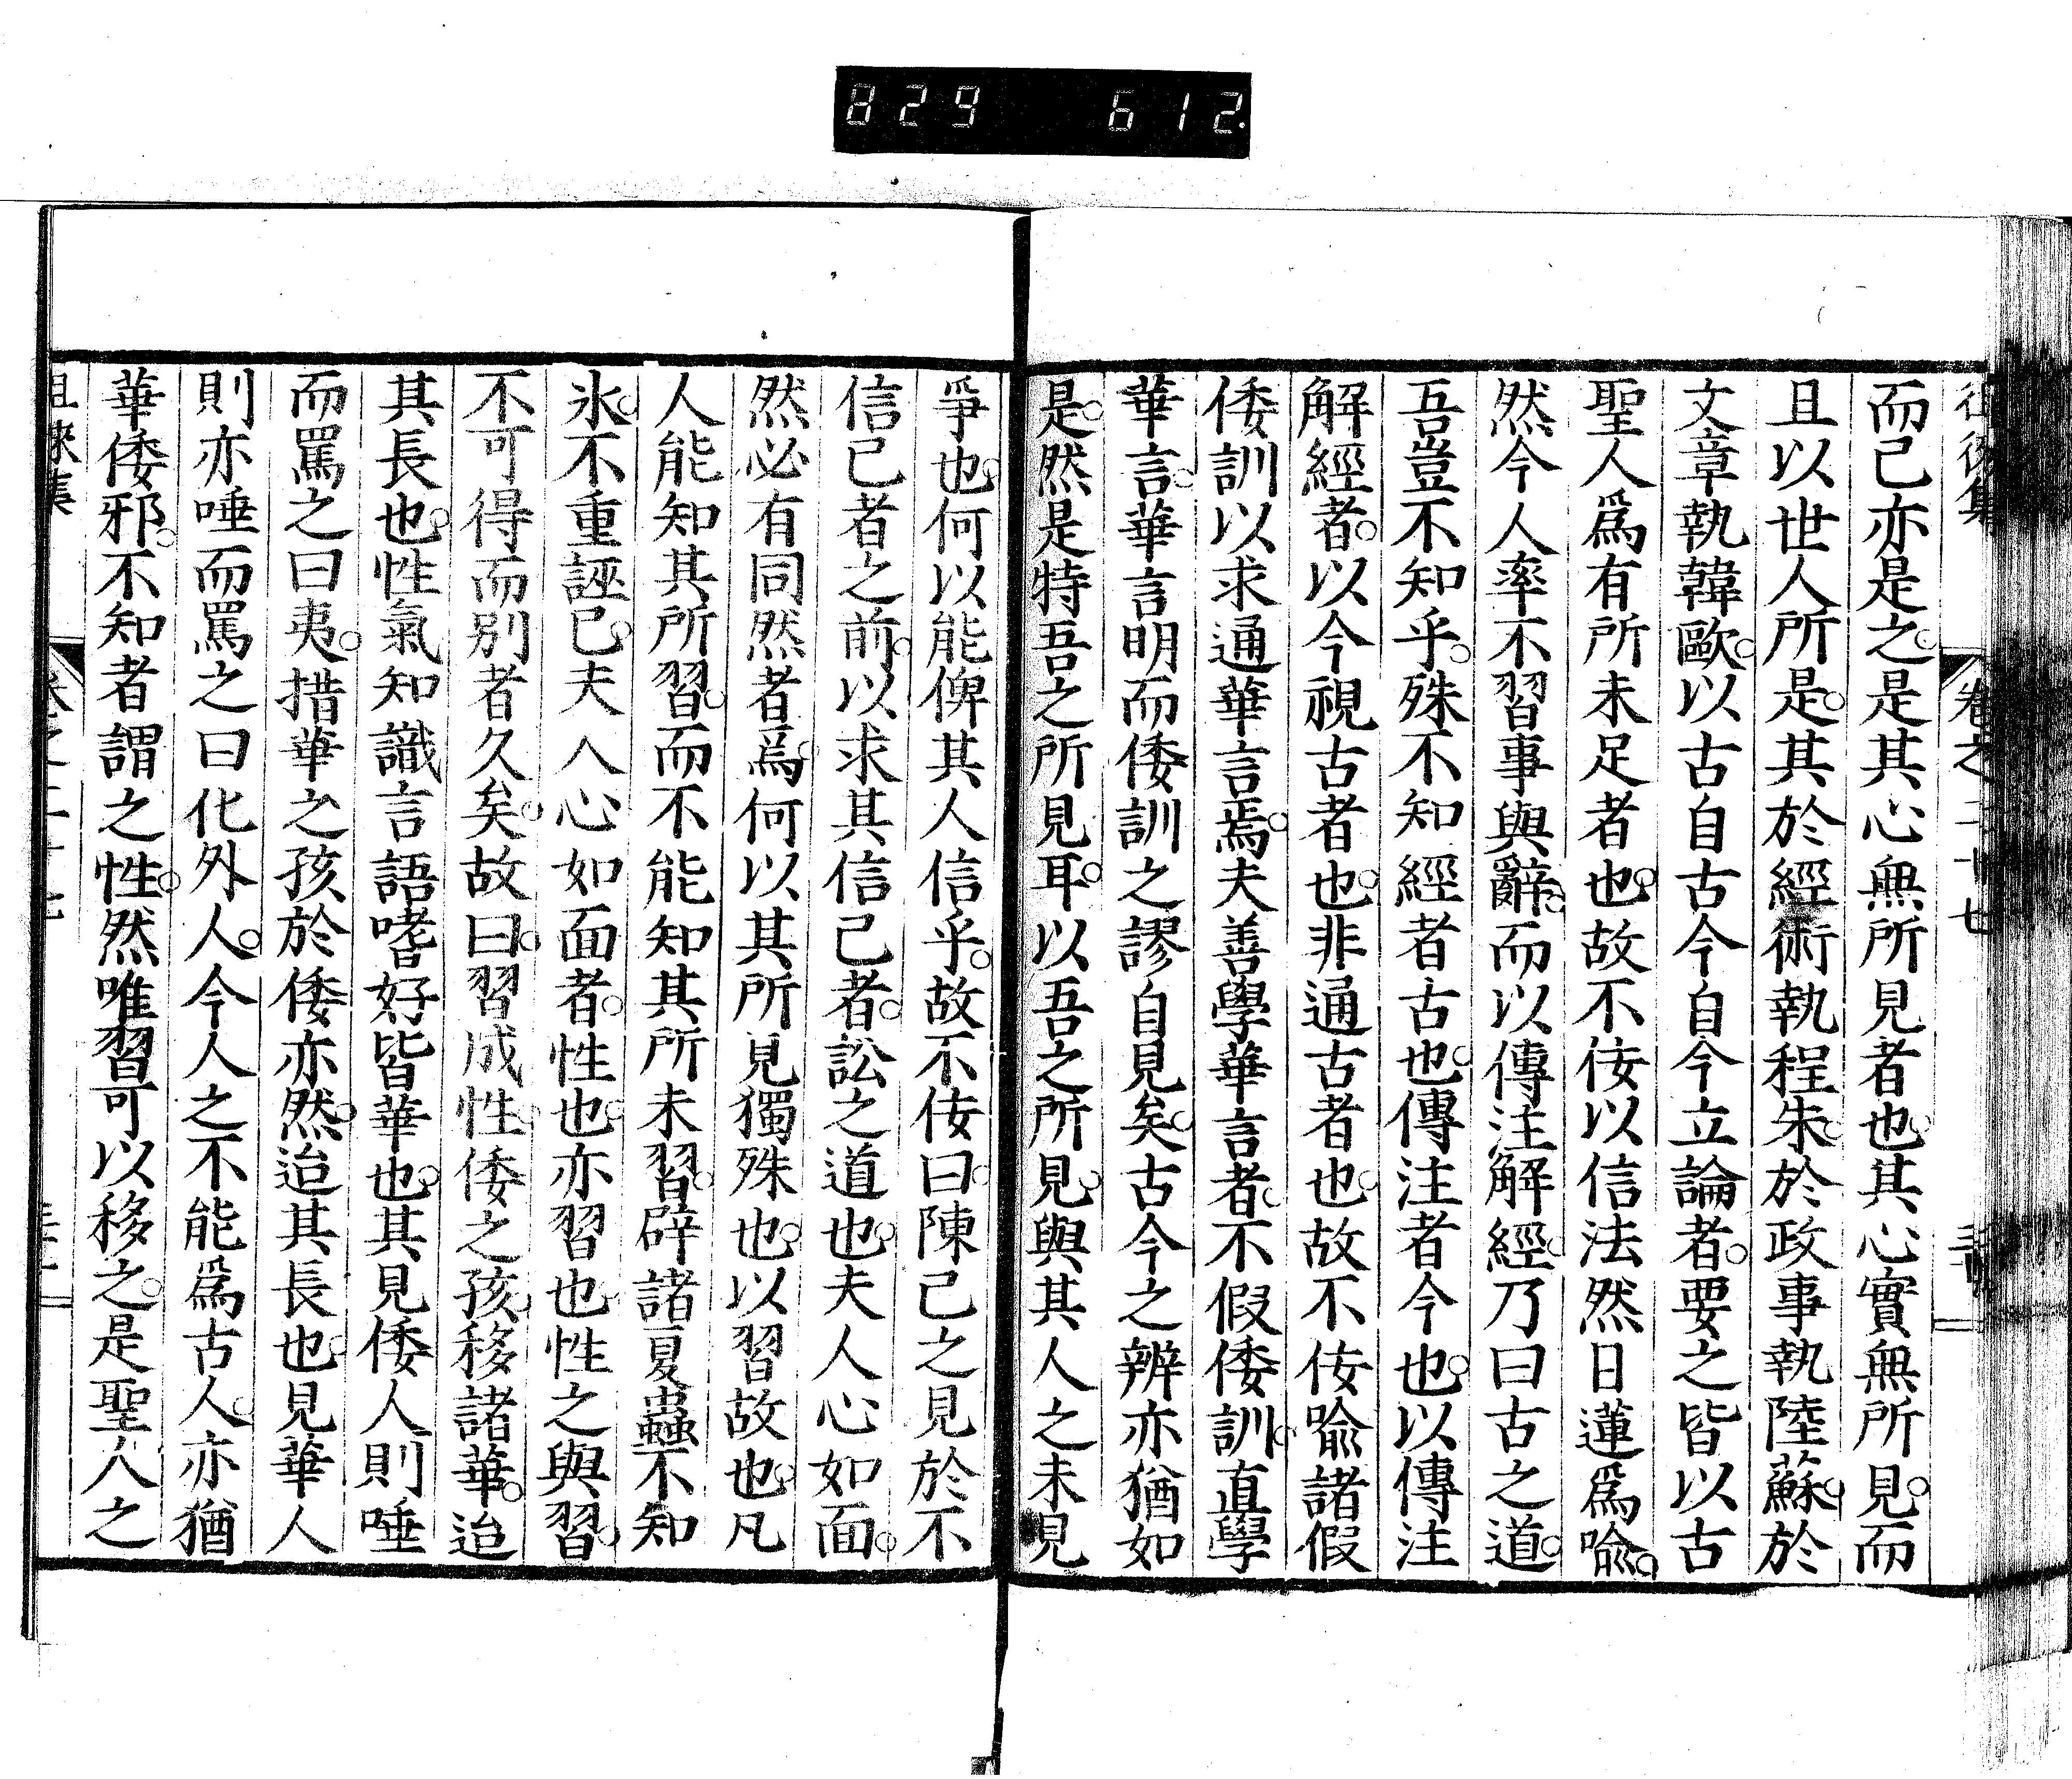 829 612
徂徠集 卷之二十七
而已亦是之是其心無所見者也其心實無所見而
且以世人所是其於經術執程朱於政事執陸蘇於
文章執韓歐以古自古今自今立論者要之皆以古
聖人爲有所未足者也故不佞以信法然日蓮爲喩
然今人率不習事與辭而以傳注解經乃曰古之道
吾豈不知乎殊不知經者古也傳注者今也以傳注
解經者以今視古者也非通古者也故不佞喩諸假
倭訓以求通華言焉夫善學華言者不假倭訓直學
華言華言明而倭訓之謬自見矣古今之辨亦猶如
是然是特吾之所見耳以吾之所見與其人之未見
爭也何以能俾其人信乎故不佞曰陳己之見於不
信己者之前以求其信己者訟之道也夫人心如面
然必有同然者爲何以其所見獨殊也以習故也凡
人能知其所習而不能知其所未習辟諸夏蟲不知
氷不重誣已夫人心如面者性也亦習也性之與習
不可得而別者久矣故曰習成性倭之孩移諸華迨
其長也性氣知識言語嗜好皆華也其見倭人則唾
而罵之曰夷措華之孩於倭亦然迨其長也見華人
則亦唾而罵之曰化外人今人之不能爲古人亦猶
華倭邪不知者謂之性然唯習可以移之是聖人之
徂徠集 卷之二十七